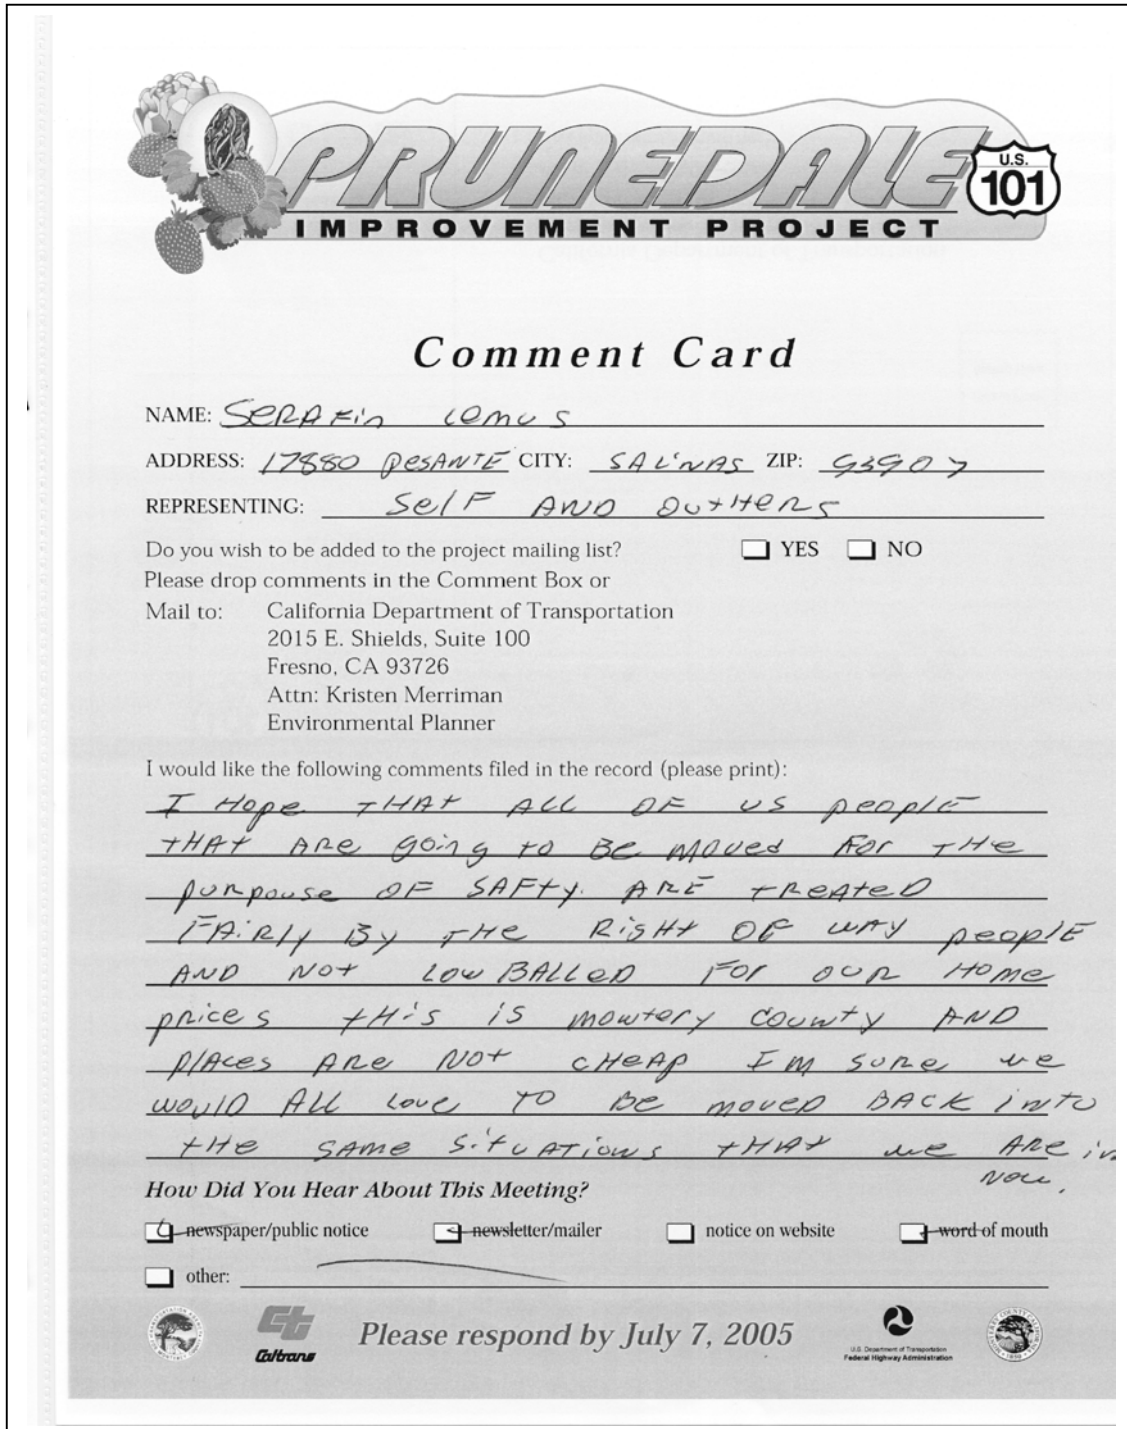 PRUNEDALE
U.S.
101
IMPROVEMENT PROJECT
Comment Card
NAME: SERAFin Lemus
ADDRESS: 17880 PESANTE CITY: SALiNAS ZIP: 93907
REPRESENTING: Self AND OutHeRS
Do you wish to be added to the project mailing list? YES NO
Please drop comments in the Comment Box or
Mail to: California Department of Transportation
2015 E. Shields, Suite 100
Fresno, CA 93726
Attn: Kristen Merriman
Environmental Planner
I would like the following comments filed in the record (please print):
I Hope THAt ALL OF US people
tHAt ARe going to Be moved For tHe
purpouse OF SAFty. ARE tReAted
FAiRly By THe RigHt OF WAy people
AND Not Low BALLeD For our Home
prices tHis is mowtery couwty AND
plAces ARe Not cHeAp Im sure we
would ALL Love TO Be moved BACK iNTO
tHe SAMe SituAtiows tHAt we ARe in
Now.
How Did You Hear About This Meeting?
newspaper/public notice newsletter/mailer notice on website word of mouth
other:
Caltrans
Please respond by July 7, 2005
U.S. Department of Transportation
Federal Highway Administration